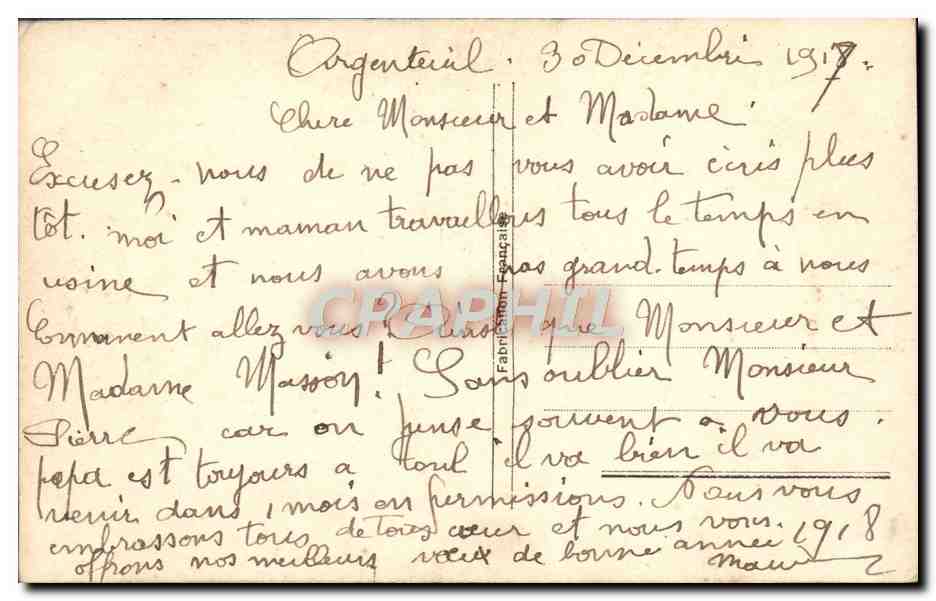 Argenteuil. 30 Décembre 1917.
Chere Monsieur et Madame
Excusez-nous de ne pas vous avoir écris plus
tôt. moi et maman travaillons tous le temps en
usine et nous avons pas grand temps à nous
Comment allez vous! Ainsi que Monsieur et
Madame Masson! Sans oublier Monsieur
Pierre car on pense souvent a vous.
papa est toujours a Toul il va bien il va
venir dans 1 mois en permissions. Nous vous
embrassons tous de tous cœur et nous vous
offrons nos meilleurs vœux de bonne année 1918
Fabrication Française
CPAPHIL